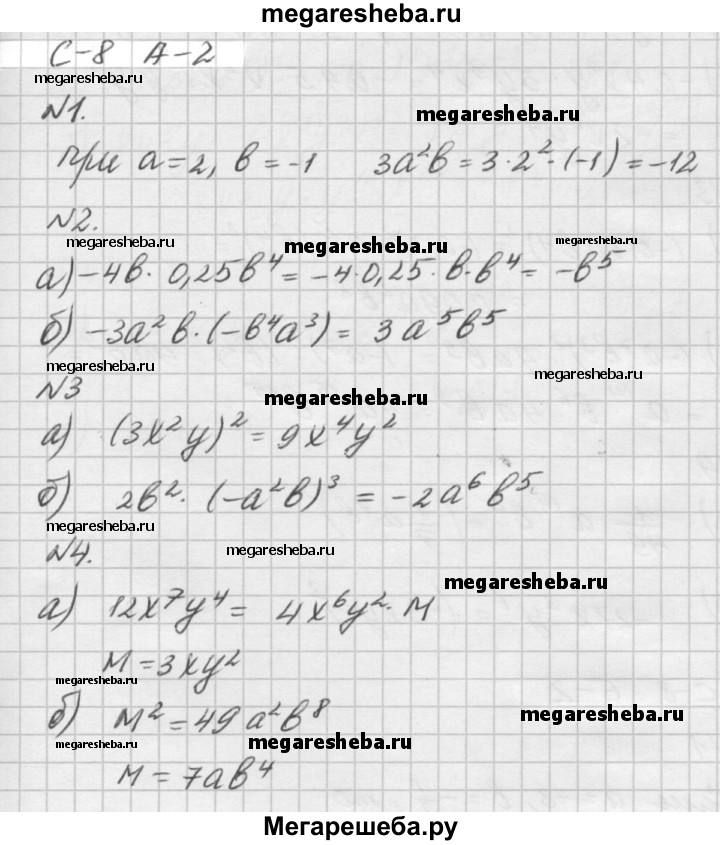 megaresheba.ru
С-8 А-2
megaresheba.ru
№1.
megaresheba.ru
при a=2, b=-1 3a²b=3·2²·(-1)=-12
№2.
megaresheba.ru megaresheba.ru megaresheba.ru
а) -4b·0,25b⁴=-4·0,25·b·b⁴=-b⁵
б) -3a²b·(-b⁴a³)= 3a⁵b⁵
megaresheba.ru
№3
megaresheba.ru
megaresheba.ru
а) (3x²y)²=9x⁴y²
megaresheba.ru
б) 2b²·(-a²b)³=-2a⁶b⁵
megaresheba.ru
№4.
megaresheba.ru
megaresheba.ru
а) 12x⁷y⁴= 4x⁶y²·M
M=3xy²
megaresheba.ru
б) M²=49a²b⁸
megaresheba.ru
megaresheba.ru megaresheba.ru
M=7ab⁴
Мегарешеба.ру